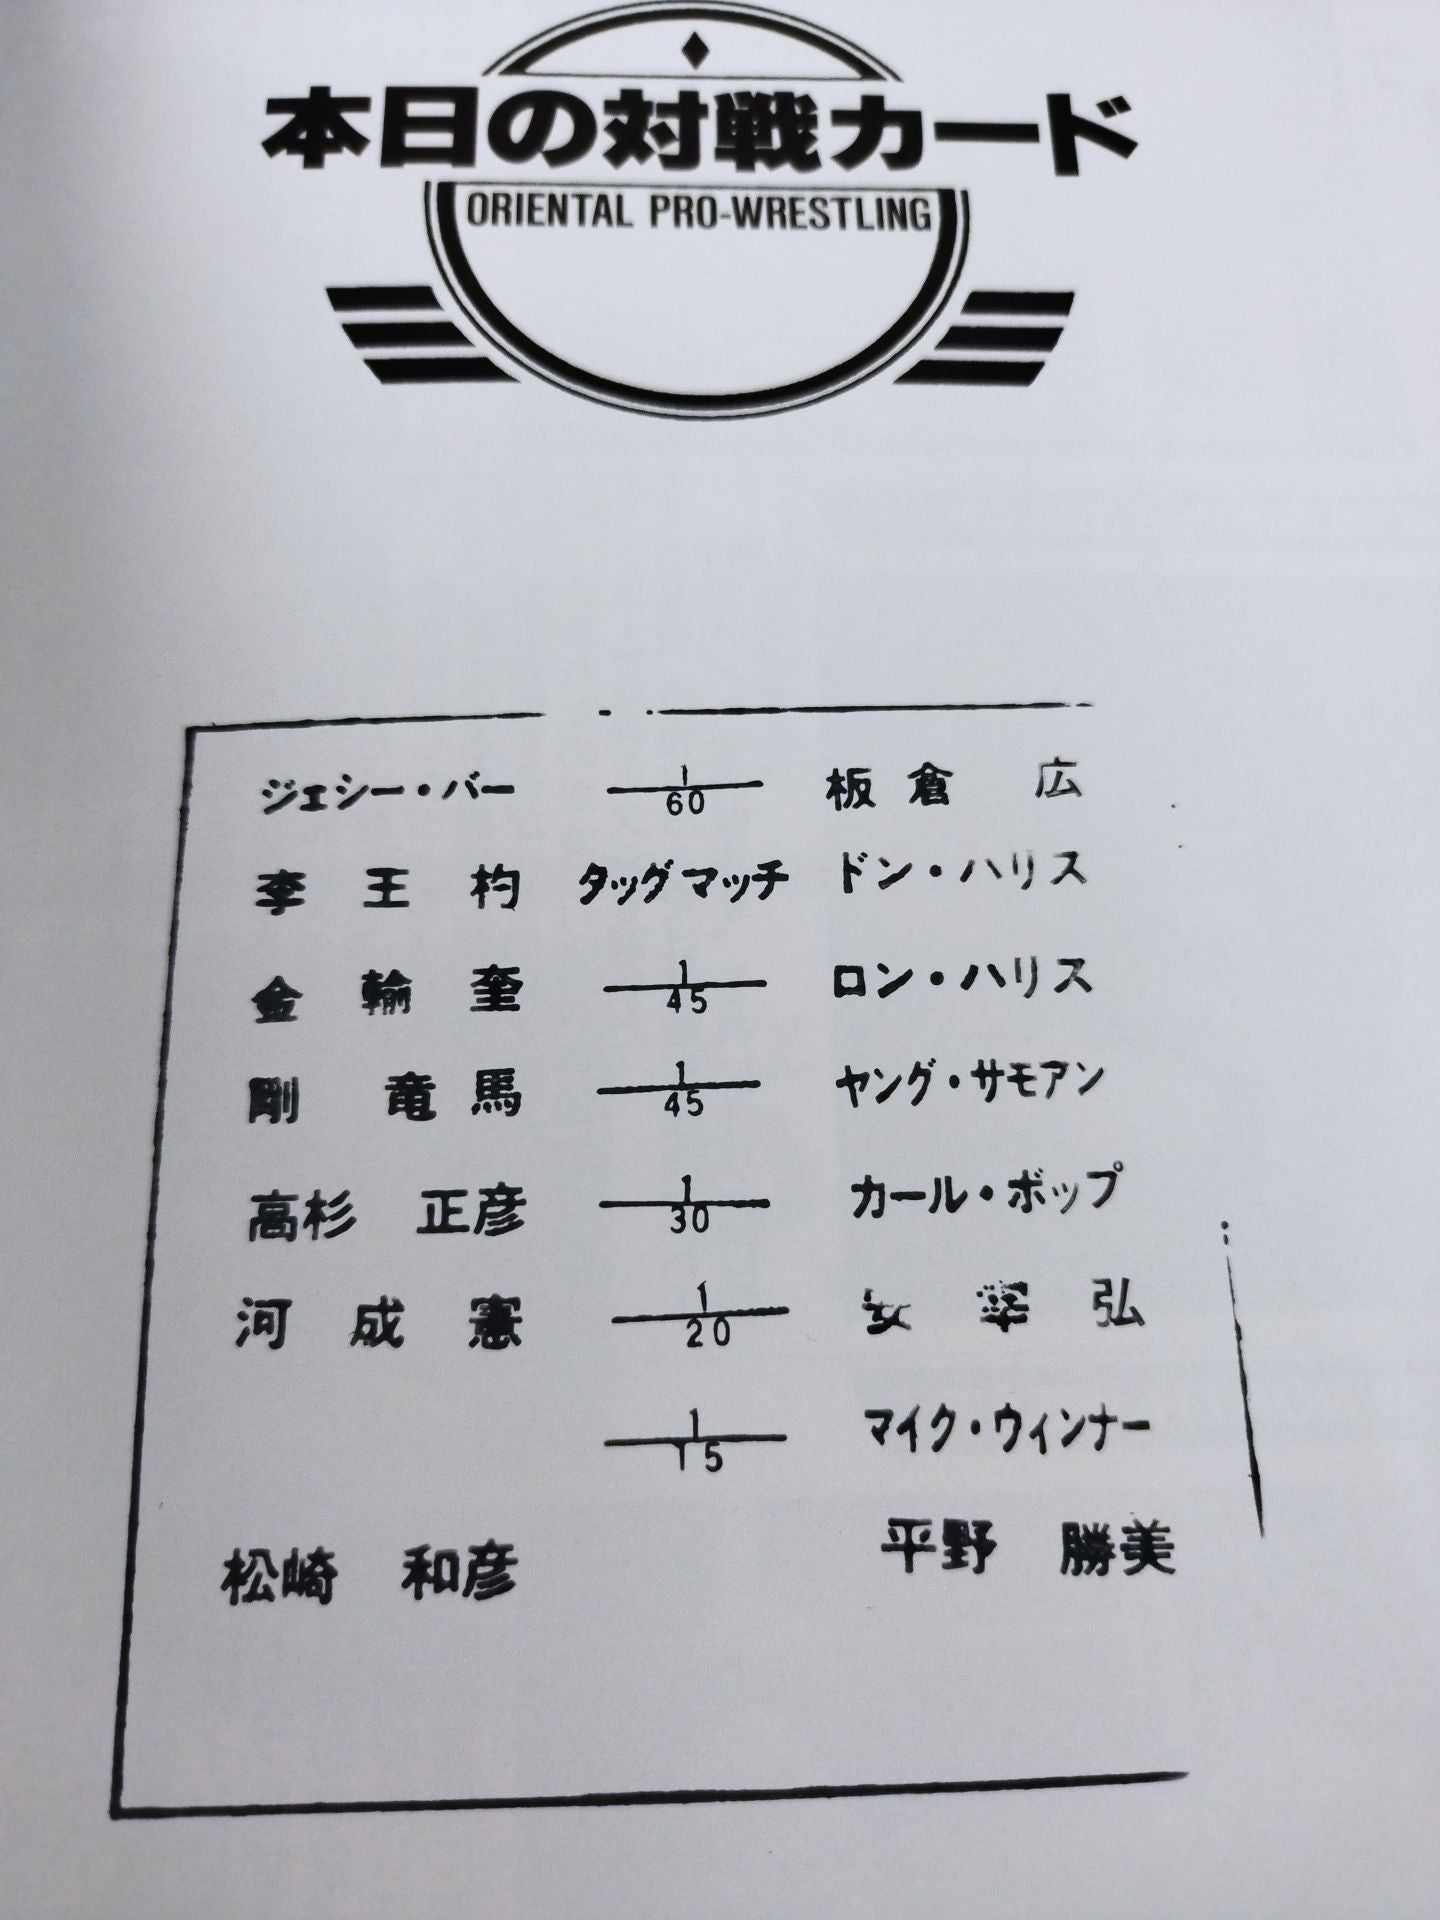 本日の対戦カード
ORIENTAL PRO-WRESTLING
ジェシー・バー 1/60 板倉 広
李 王 杓 タッグマッチ ドン・ハリス
金 輸 奎 1/45 ロン・ハリス
剛 竜馬 1/45 ヤング・サモアン
高杉 正彦 1/30 カール・ボップ
河 成 憲 1/20 弘
1/15 マイク・ウィンナー
松崎 和彦 平野 勝美